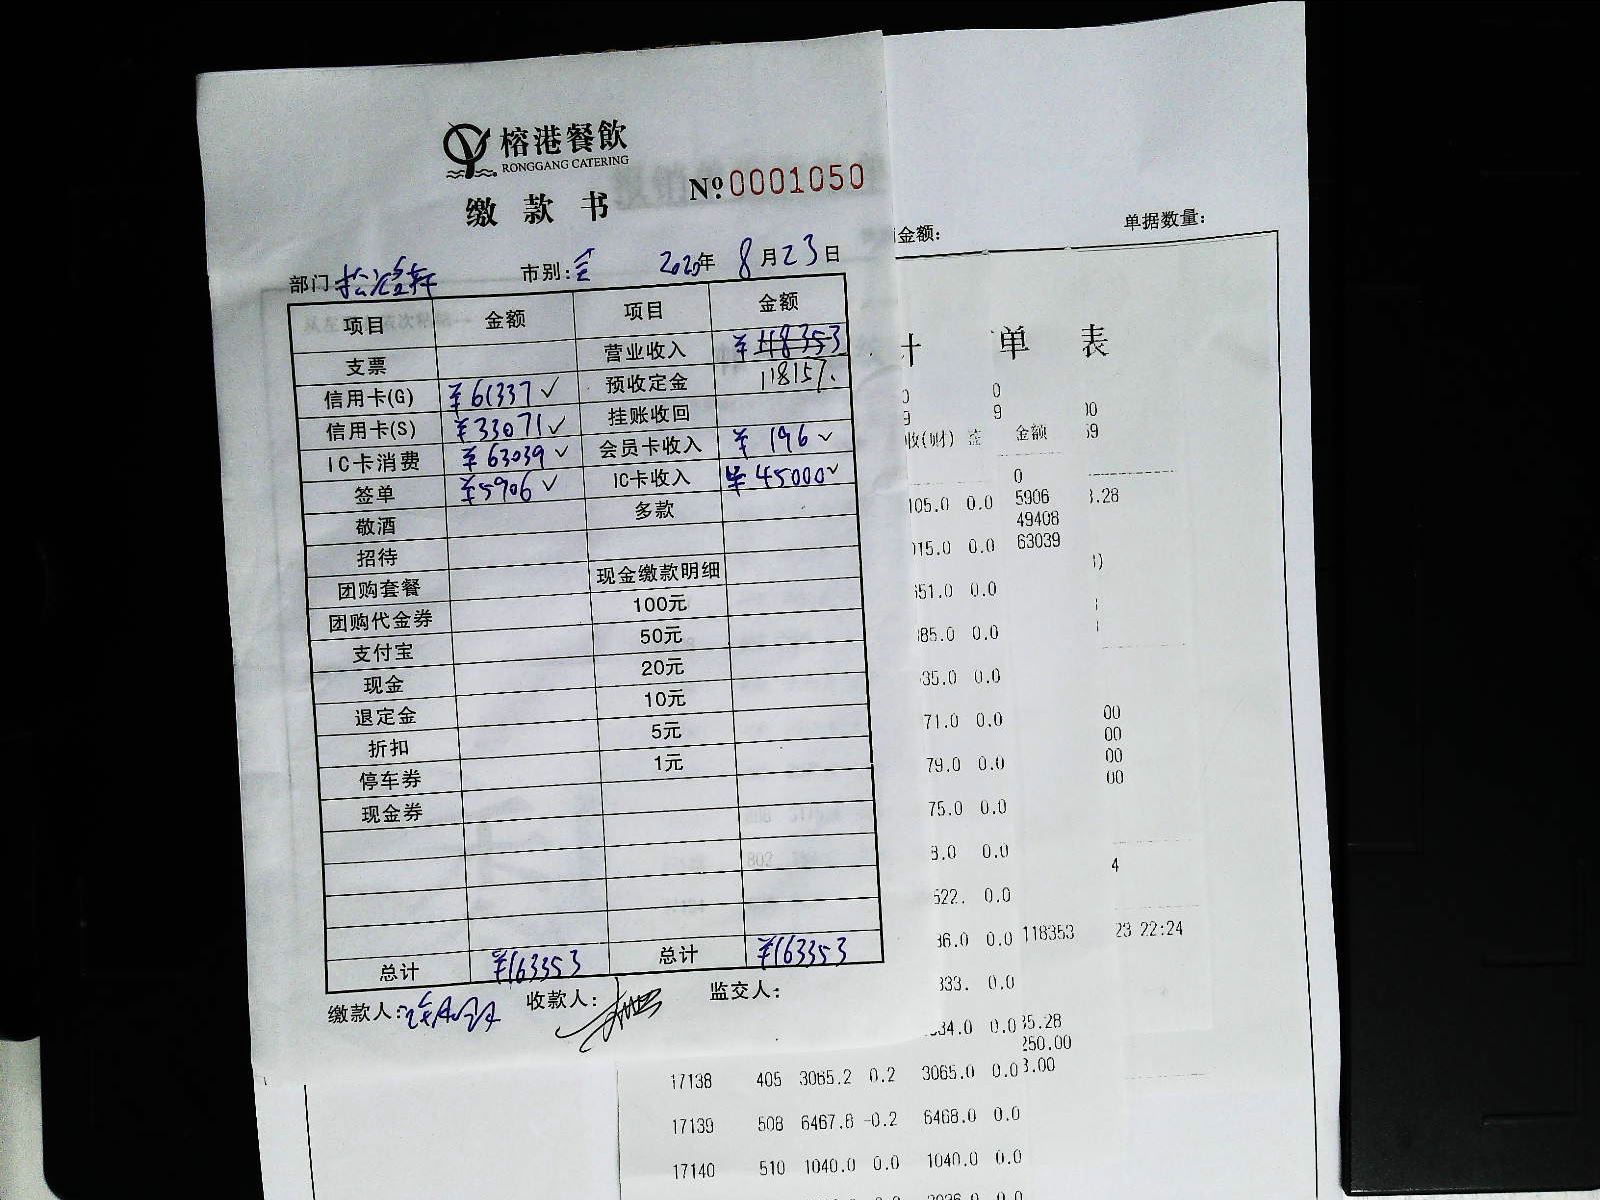 榕港餐飲
RONGGANG CATERING
缴款书 №0001050
部门: 市别: 2020年8月23日
项目 金额 项目 金额
支票 营业收入 ¥118353
信用卡(G) ¥61337✓ 预收定金 118157.
信用卡(S) ¥33071✓ 挂账收回
IC卡消费 ¥63039✓ 会员卡收入 ¥196✓
签单 ¥5906✓ IC卡收入 ¥45000✓
敬酒 多款
招待
团购套餐 现金缴款明细
团购代金券 100元
支付宝 50元
现金 20元
退定金 10元
折扣 5元
停车券 1元
现金券
总计 ¥163353 总计 ¥163353
缴款人: 收款人: 监交人:
金额: 单据数量:
单 表
0 0
9 9 00
收(财) 金额 59
0
105.0 0.0 5906 .28
49408
015.0 0.0 63039
651.0 0.0
85.0 0.0
35.0 0.0
71.0 0.0 00
00
79.0 0.0 00
00
75.0 0.0
8.0 0.0
4
522. 0.0
36.0 0.0 118353 23 22:24
333. 0.0
34.0 0.0 35.28
250.00
17138 405 3065.2 0.2 3065.0 0.0 3.00
17139 508 6467.8 -0.2 6468.0 0.0
17140 510 1040.0 0.0 1040.0 0.0